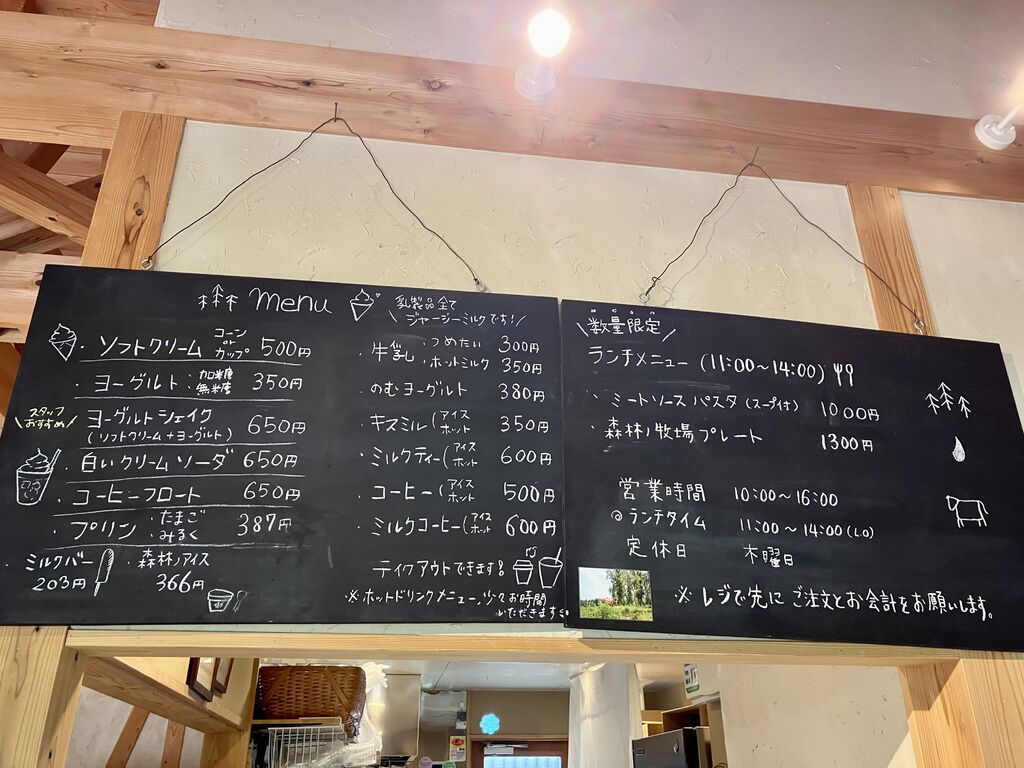 menu
乳製品全て
ジャージーミルクです!
・ソフトクリーム コーン or カップ 500円
・ヨーグルト:加糖 無糖 350円
スタッフ
おすすめ
ヨーグルトシェイク 650円
(ソフトクリーム+ヨーグルト)
・白いクリームソーダ 650円
・コーヒーフロート 650円
・プリン ・たまご ・みるく 387円
ミルクバー
203円
・森林ノアイス
366円
・牛乳 ・つめたい 300円
・ホットミルク 350円
・のむヨーグルト 380円
・キスミル(アイス ホット 350円
・ミルクティー(アイス ホット 600円
・コーヒー(アイス ホット 500円
・ミルクコーヒー(アイス ホット 600円
テイクアウトできます!
※ホットドリンクメニュー、少々お時間
いただきます。
数量限定
ランチメニュー (11:00〜14:00)
・ミートソースパスタ(スープ付) 1000円
・森林ノ牧場プレート 1300円
営業時間 10:00〜16:00
@ランチタイム 11:00〜14:00(LO)
定休日 木曜日
※レジで先にご注文とお会計をお願いします。